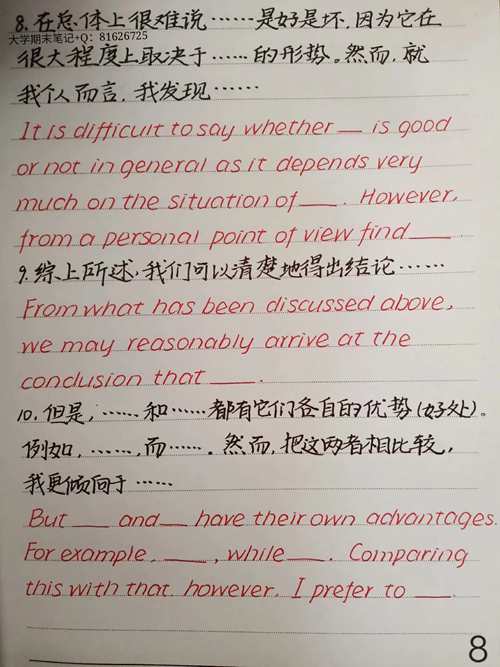 8. 在总体上很难说……是好是坏,因为它在
大学期末笔记+Q: 81626725
很大程度上取决于……的形势。然而,就
我个人而言,我发现……
It is difficult to say whether __ is good
or not in general as it depends very
much on the situation of ___. However,
from a personal point of view find ___.
9. 综上所述,我们可以清楚地得出结论……
From what has been discussed above,
we may reasonably arrive at the
conclusion that ___.
10. 但是,……和……都有它们各自的优势(好处)。
例如,……,而……。然而,把这两者相比较,
我更倾向于……
But ___ and __ have their own advantages.
For example, ___, while ___. Comparing
this with that, however, I prefer to ___.
8